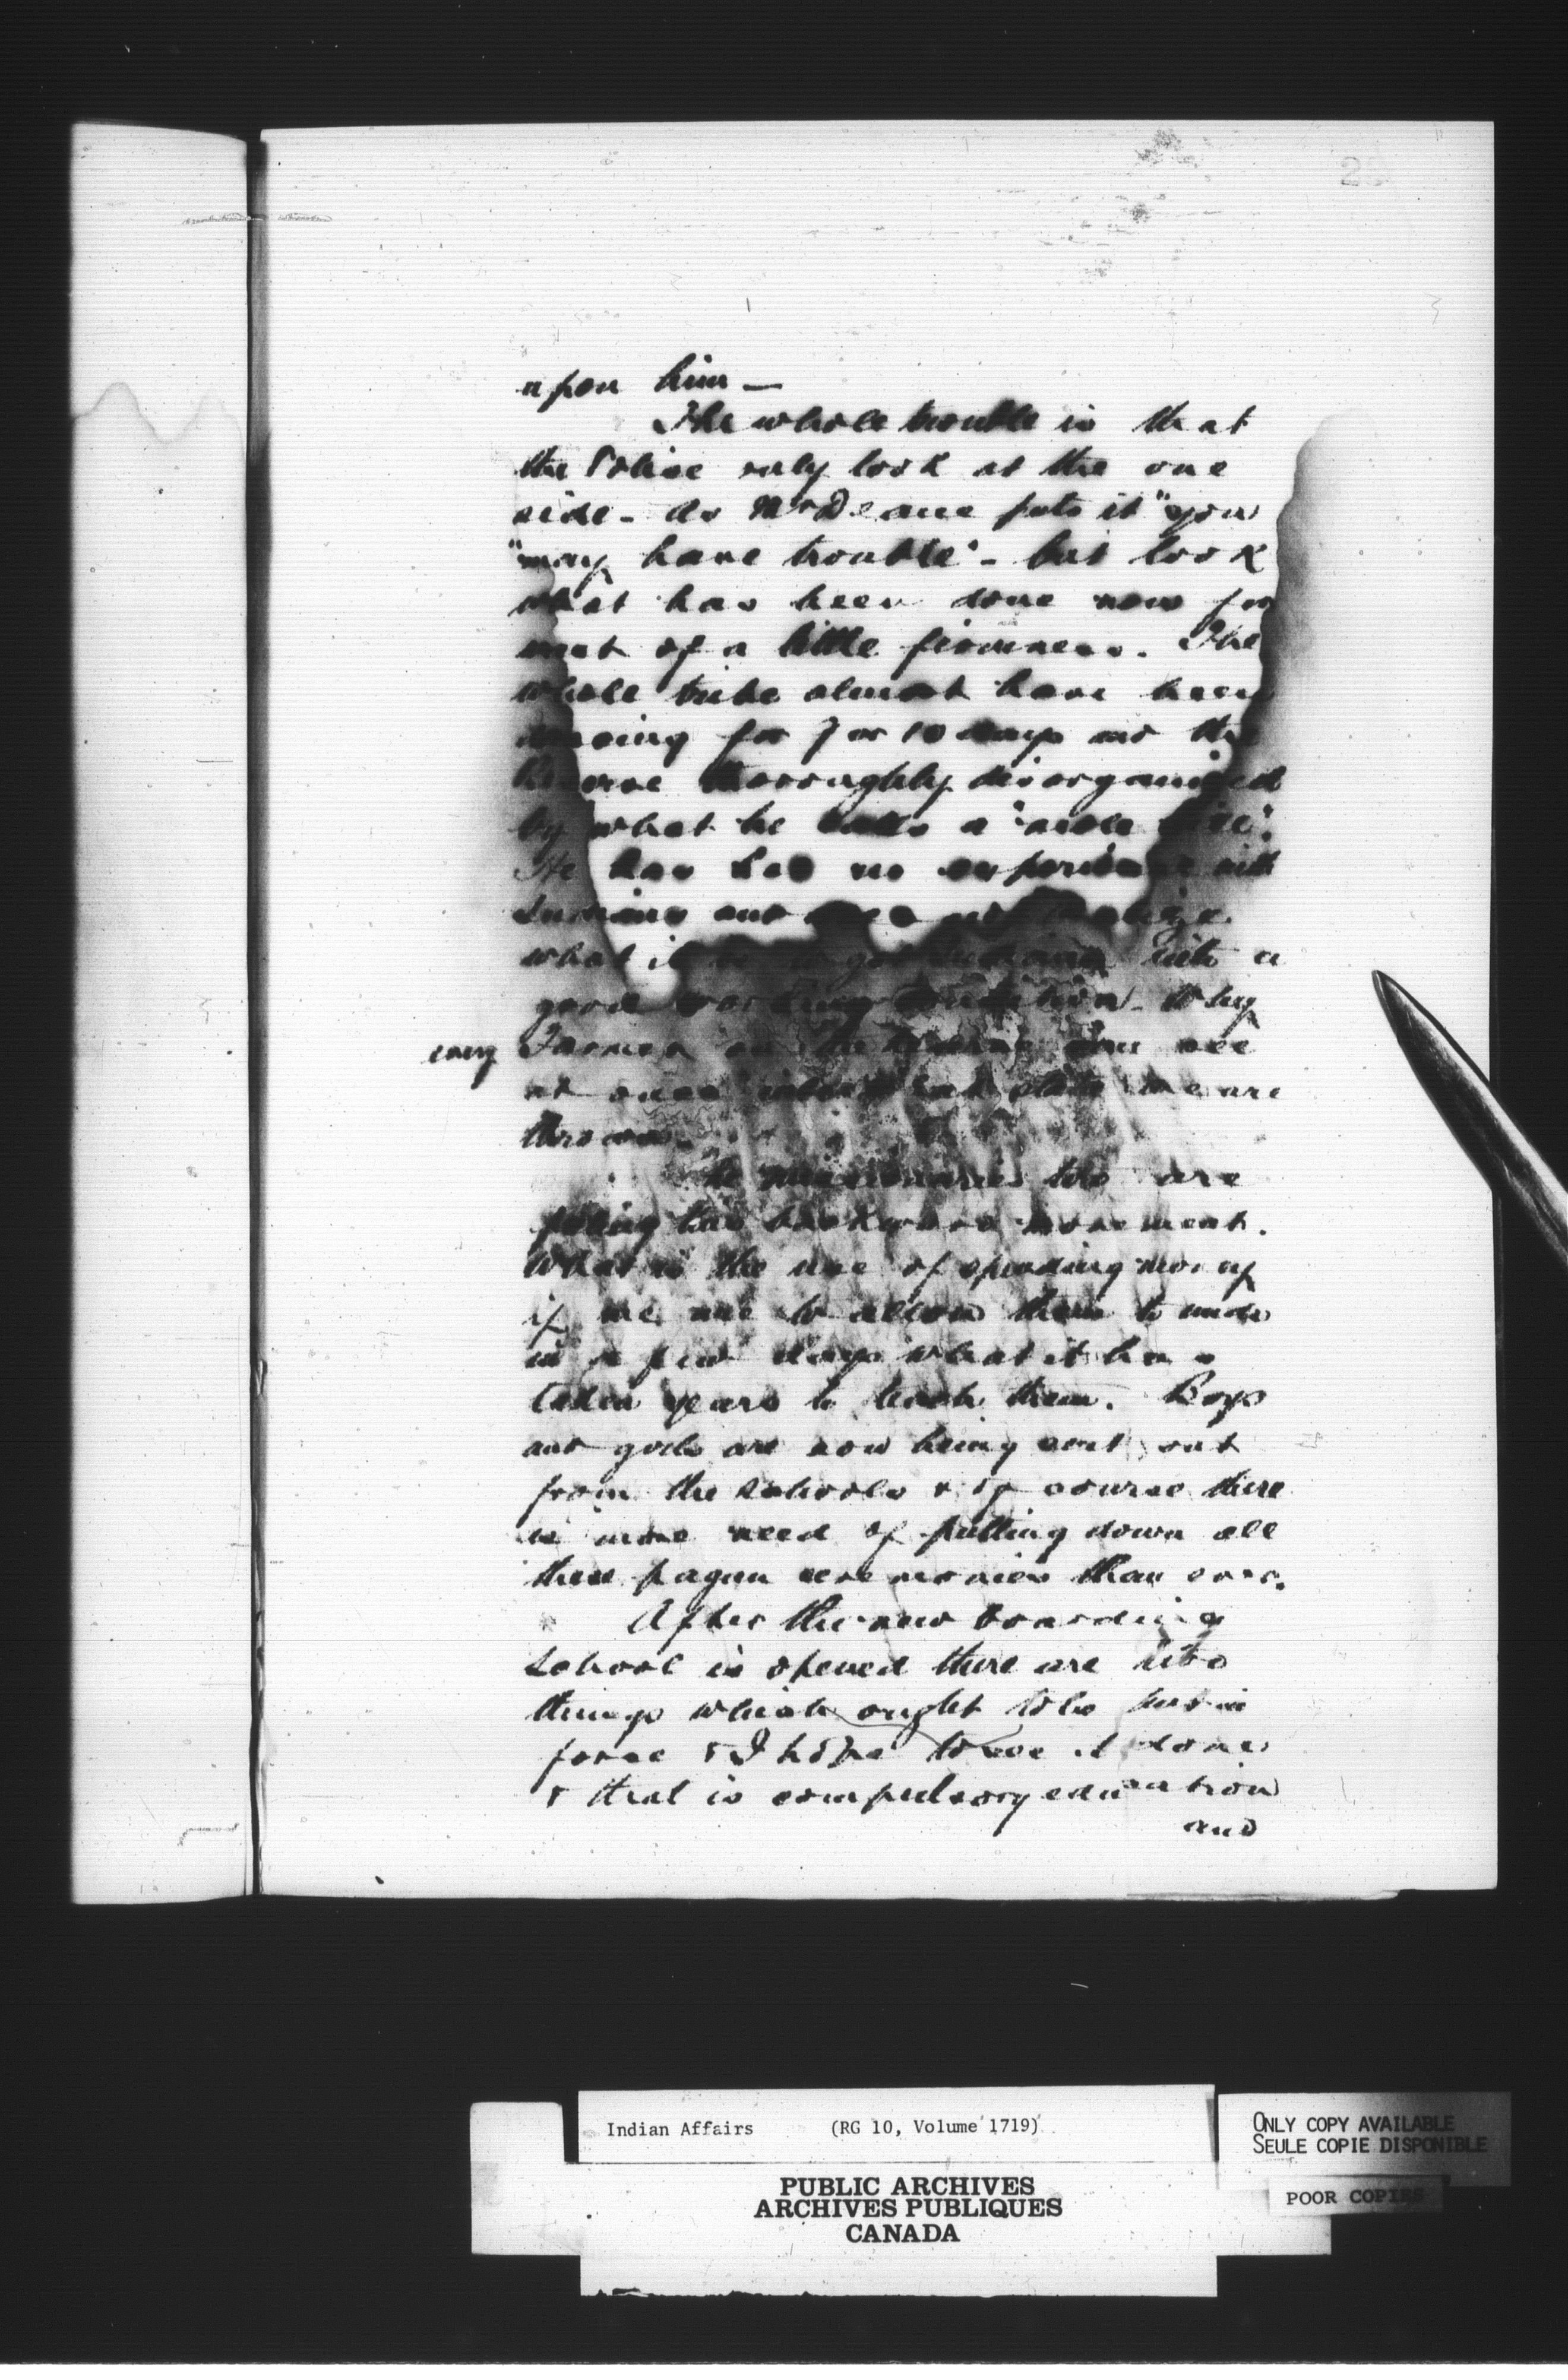 upon him —
The whole trouble is that
the Police only look at the one
side - As Mr Deane puts it "you
"may have trouble" - but look
what has been done now for
want of a little firmness. The
whole tribe almost have been
dancing for 7 or 10 days and the
Reserve thoroughly disorganized
by what he calls a "side
He has had no experience with
Indians and does not realize
what it is to get Indians into a
good working condition. Why
every Farmer on the Reserve can see
at once what state we are
thrown.
The Missionaries too are
feeling this backward movement.
What is the use of spending money
if we are to allow them to undo
in a few days what it has
taken years to teach them. Boys
and girls are now being sent out
from the schools & of course there
is more need of putting down all
these pagan ceremonies than ever.
After the new boarding
School is opened there are two
things which ought to be put in
force & I hope to see it done
& that is compulsory education
and
Indian Affairs (RG 10, Volume 1719)
PUBLIC ARCHIVES
ARCHIVES PUBLIQUES
CANADA
ONLY COPY AVAILABLE
SEULE COPIE DISPONIBLE
POOR COPIES